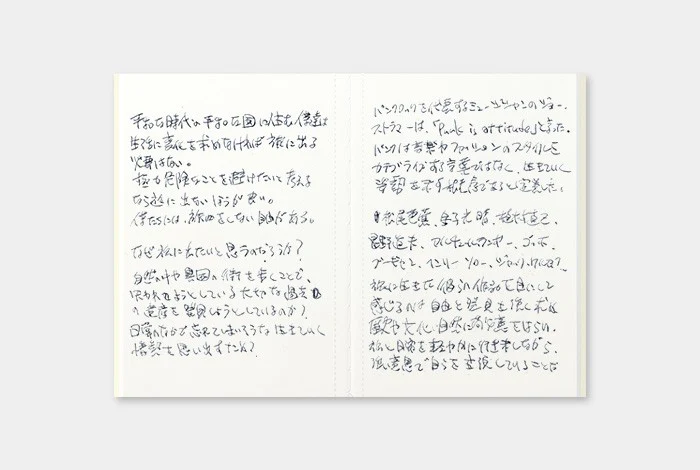 平和な時代の平和な国に住む僕達は
生活に変化を求めなければ旅に出る
必要はない。
極力危険なことを避けたいと考える
なら旅に出ないほうが良い。
僕たちには、旅をしない自由がある。
なぜ旅に出たいと思うのだろうか?
自然の中や異国の街を歩くことで、
失われようとしている大切な過去
の遺産を発見しようとしているのか?
日常のなかで忘れてしまいそうな生きていく
情熱を思い出すため?
パンクロックを代表するミュージシャンのジョー・
ストラマーは、「Punk is attitude」と言った。
パンクは音楽やファッションのスタイルを
カテゴライズする言葉ではなく、生きていく
姿勢を示す精神であると定義した。
松尾芭蕉、金子光晴、植村直己、
星野道夫、
ゴーギャン、ヘンリー・ソロー、ジャック・ケルアック、
旅に生きた彼らの作品を目にして
感じるのは自由と発見を強く求め
歴史や文化、自然に敬意をはらい、
旅と日常を軽やかに行き来しながら、
強い意思で自らを表現していることだ